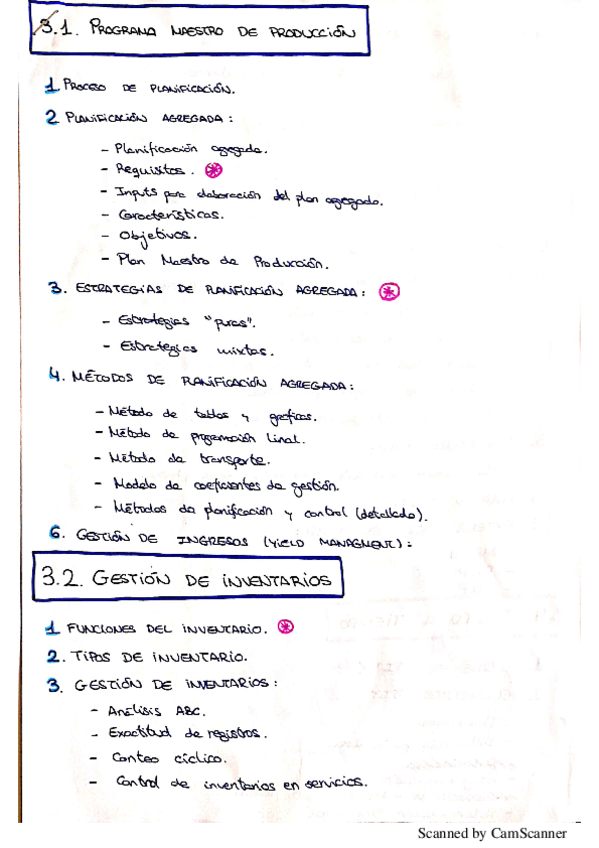 3.1. PROGRAMA MAESTRO DE PRODUCCIÓN
1 PROCESO DE PLANIFICACIÓN.
2 PLANIFICACIÓN AGREGADA:
- Planificación agregada.
- Requisitos.
- Inputs para elaboración del plan agregado.
- Características.
- Objetivos.
- Plan Maestro de Producción.
3. ESTRATEGIAS DE PLANIFICACIÓN AGREGADA:
- Estrategias "puras".
- Estrategias mixtas.
4. MÉTODOS DE PLANIFICACIÓN AGREGADA:
- Método de tablas y gráficas.
- Método de programación lineal.
- Método de transporte.
- Modelo de coeficientes de gestión.
- Métodos de planificación y control (detallado).
6. GESTIÓN DE INGRESOS (YIELD MANAGMENT):
3.2. GESTIÓN DE INVENTARIOS
1 FUNCIONES DEL INVENTARIO.
2. TIPOS DE INVENTARIO.
3. GESTIÓN DE INVENTARIOS:
- Análisis ABC.
- Exactitud de registros.
- Conteo cíclico.
- Control de inventarios en servicios.
Scanned by CamScanner